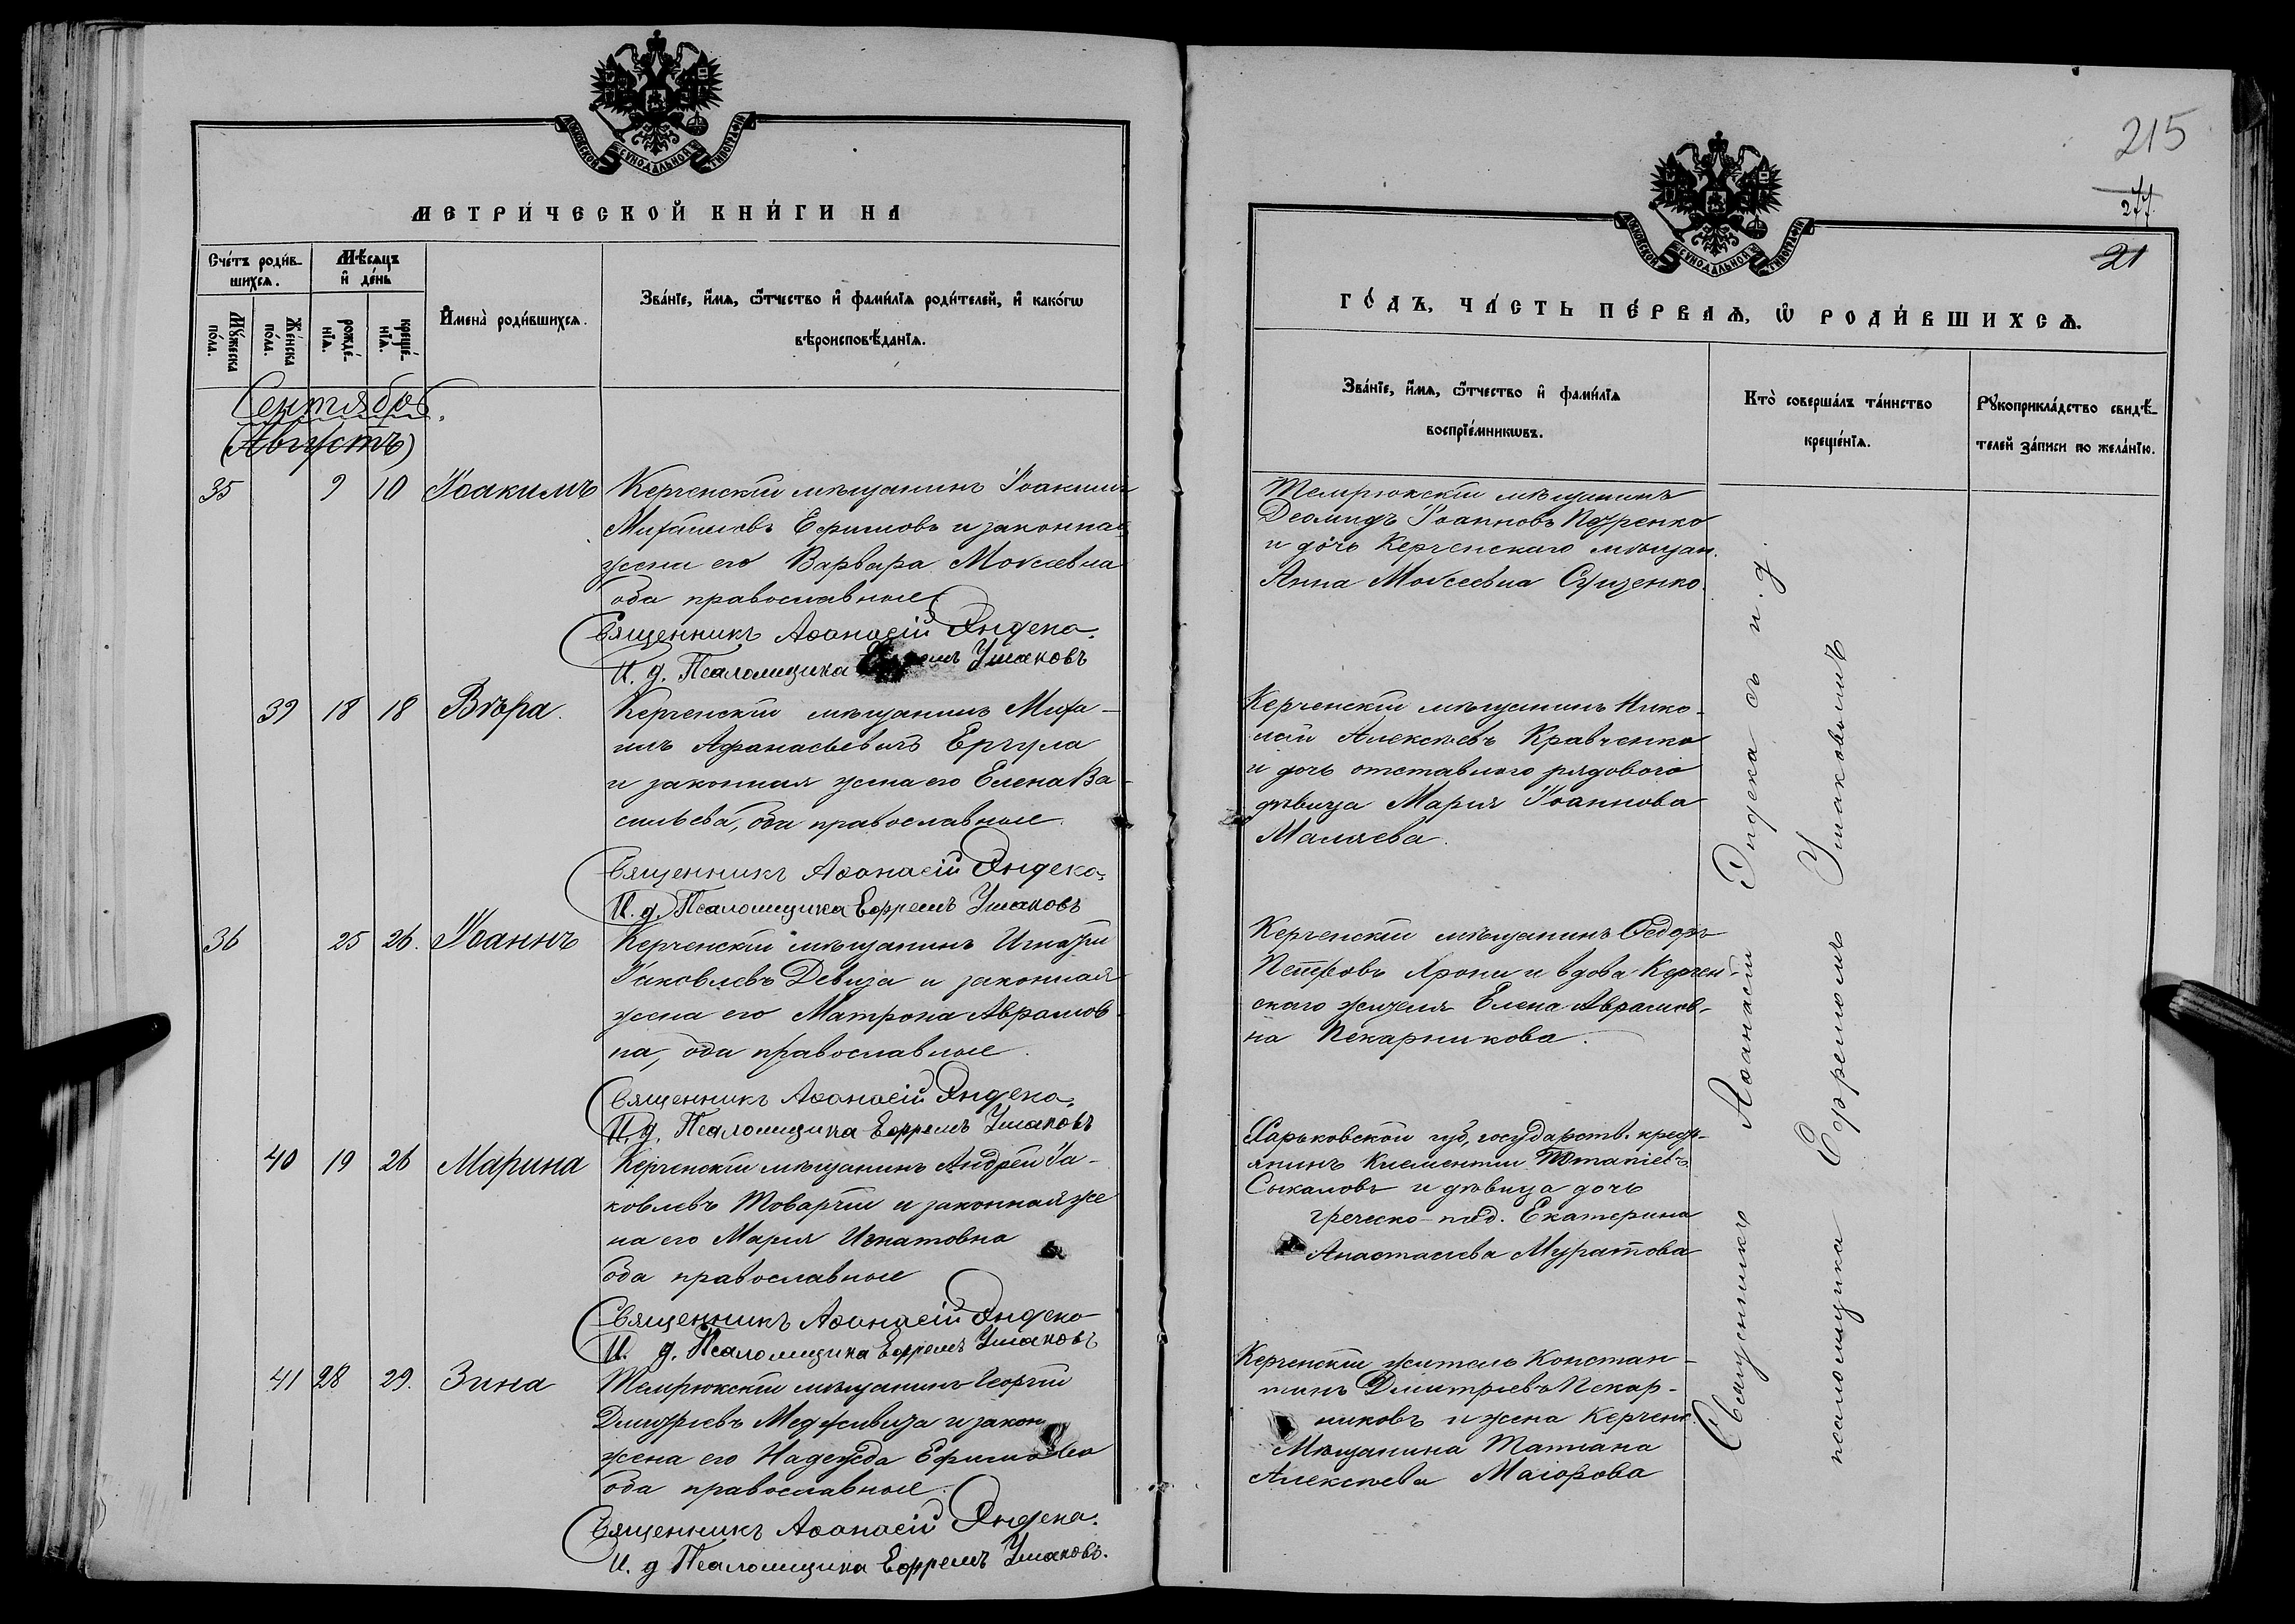 МОСКОВСКОЙ СУНОДАЛЬНОЙ ТИПОГРАФІИ
МЕТРИ́ЧЕСКОЙ КНИ́ГИ НА
Сче́тъ роди́в-
шихся.
Мѣ́сяцъ
и де́нь
Му́жеска по́ла.
Же́нска по́ла.
рожде́-
нія.
креще́-
нія.
Имена̀ роди́вшихся.
Зва́ніе, и́мя, ѻ́тчество и фами́лія роди́телей, и како́гѡ
вѣроисповѣ́данія.
Сентябрь.
(Августъ)
35 9 10 Іоакимъ Керченскій мѣщанинъ Іоакимъ
Михаиловъ Ефимовъ и законная
жена его Варвара Моисеевна
оба православные
Священникъ Аѳанасій Яндека.
И. д. Псаломщика Ефремъ Ушаковъ
39 18 18 Вѣра. Керченскій мѣщанинъ Миха-
илъ Афанасьевичъ Ергула
и законная жена его Елена Ва-
сильева, оба православные.
Священникъ Аѳанасій Яндека.
И. д. Псаломщика Ефремъ Ушаковъ
36 25 26. Іоаннъ Керченскій мѣщанинъ Игнатій
Яковлевъ Девиза и законная
жена его Матрона Аврамов-
на, оба православные.
Священникъ Аѳанасій Яндека.
И. д. Псаломщика Ефремъ Ушаковъ
40 19 26 Марина Керченскій мѣщанинъ Андрей Іа-
ковлевъ Товарчій и законная же
на его Марія Игнатовна
оба православные
Священникъ Аѳанасій Яндека
И. д. Псаломщика Ефремъ Ушаковъ
41 28 29. Зина Темрюкскій мѣщанинъ Георгій
Дмитріевъ и закон
жена его Надежда
оба православные.
Священникъ Аѳанасій Яндека.
И. д Псаломщика Ефремъ Ушаковъ.
215
277.
21
МОСКОВСКОЙ СУНОДАЛЬНОЙ ТИПОГРАФІИ
ГО́ДЪ, ЧА́СТЬ ПЕ́РВАЯ, Ѡ РОДИ́ВШИХСЯ.
Зва́ніе, и́мя, ѻ́тчество и фами́лія
воспріе́мникѡвъ.
Кто̀ соверша́лъ та́инство
креще́нія.
Рукоприкла́дство свидѣ́-
телей за́писи по жела́нію.
Темрюкскій мѣщанинъ
Деомидъ Іоанновъ
и дочь Керченскаго мѣщан.
Анна Моисеевна Сущенко.
Керченскій мѣщанинъ Нико-
лай Алексѣевъ Кравченко
и дочь отставного рядового
дѣвица Марія Іоаннова
Маляева.
Керченскій мѣщанинъ Ѳедоръ
Петровъ и вдова Керчен-
скаго жителя Елена Аврамов-
на Пекарникова.
Харьковской губ, государств. крест-
янинъ Климентій
Сокаловъ и дѣвица дочь
греческо-под. Екатерина
Анастасіева Муратова
Керченскій житель Констан-
тинъ Дмитріевъ Пекар-
никовъ и жена Керченс.
Мѣщанина Татіана
Алексѣева Маіорова
Священникъ Аѳанасій Яндека съ и. д
псаломщика Ефремомъ Ушаковымъ